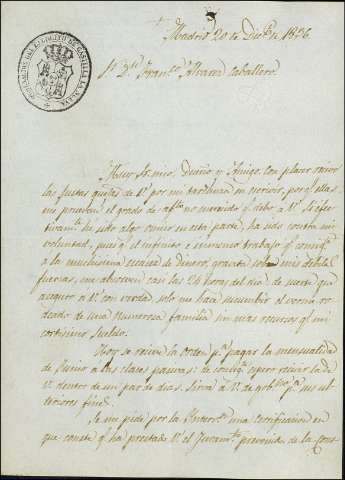 Madrid 20 de Dic.e de 1836.
Sr. D.n Fran.co Alvarez Caballero.
Muy Sr. mio, Dueño y Amigo. Con placer recivo
las justas quejas de V. por mi tardanza en escrivir, porq.e ellas
me presentan el grado de afecto no merecido q.e debo a V. Si efec
tivam.te he sido algo omiso en esta parte, ha sido contra mi
voluntad, pues q.e el infinito e inmenso trabajo q.e
a la muchisima escasez de dinero, gravita sobre mis debiles
fuerzas, me absorven las 24 horas del dia, de suerte que
aseguro a V. con verdad solo me hace sucumbir el verme ro
deado de una numerosa familia sin mas recursos q.e mi
cortisimo sueldo.
Hoy se recive la orden p.a pagar la mensualidad
de Junio a las clases pasivas: de consig.te espero recivir la de
V. dentro de un par de dias. Sirva a V. de gob.no p.a sus ul
teriores fines.
Se me pide por la Interv.on una certificacion en
que conste q.e ha prestado V. el Juram.to prevenido de la Cons-